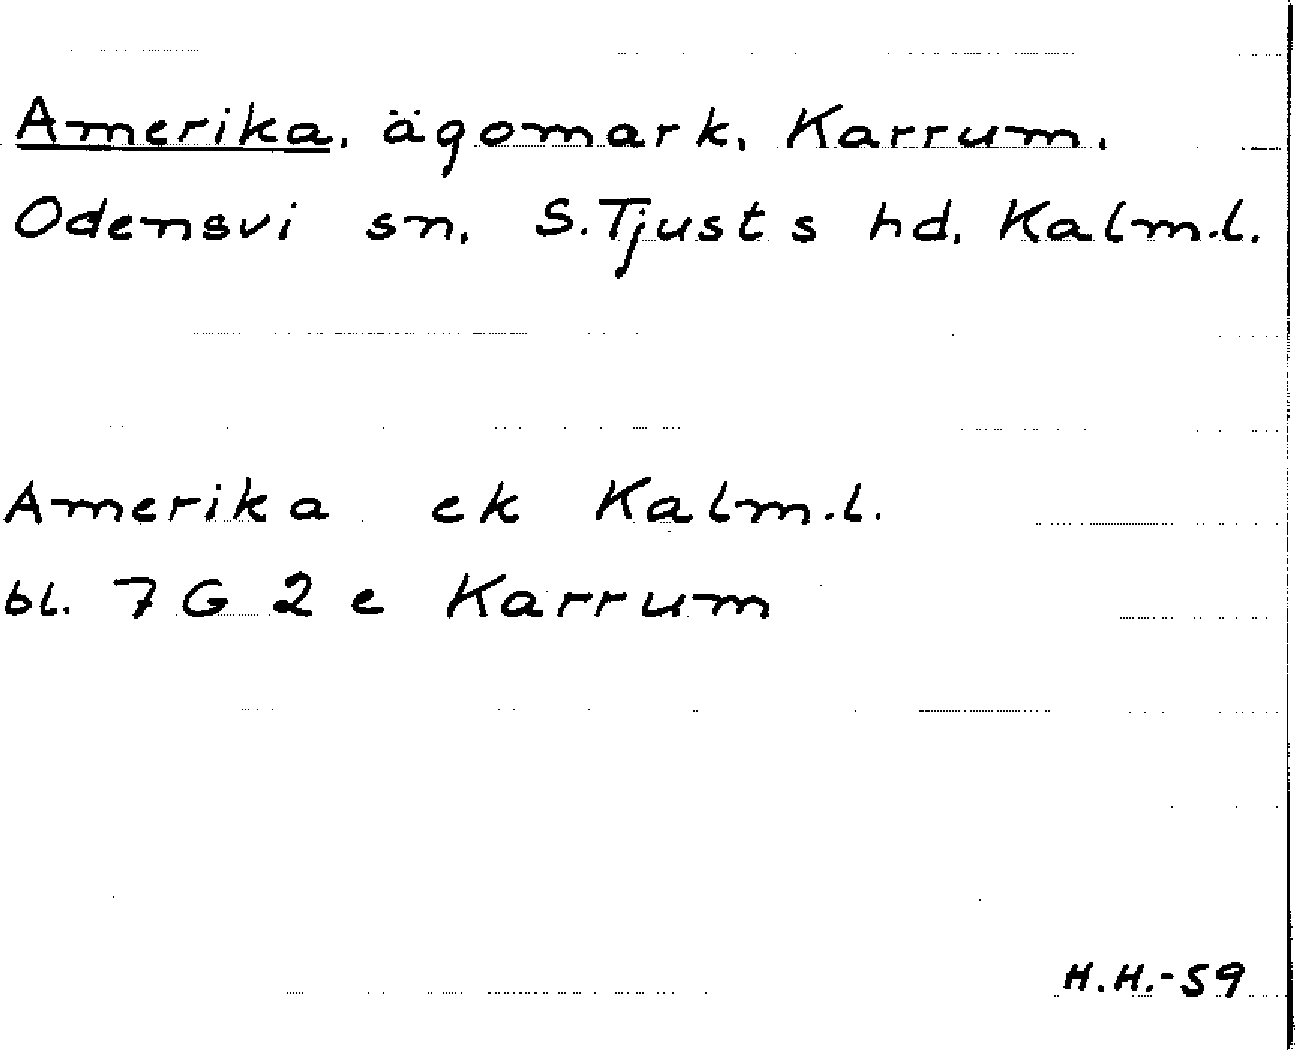 Amerika, ägomark, Karrum,
Odensvi sn, S.Tjusts hd, Kalm.l.
Amerika ek Kalm.l.
bl. 7 G 2 e Karrum
H.H.-59